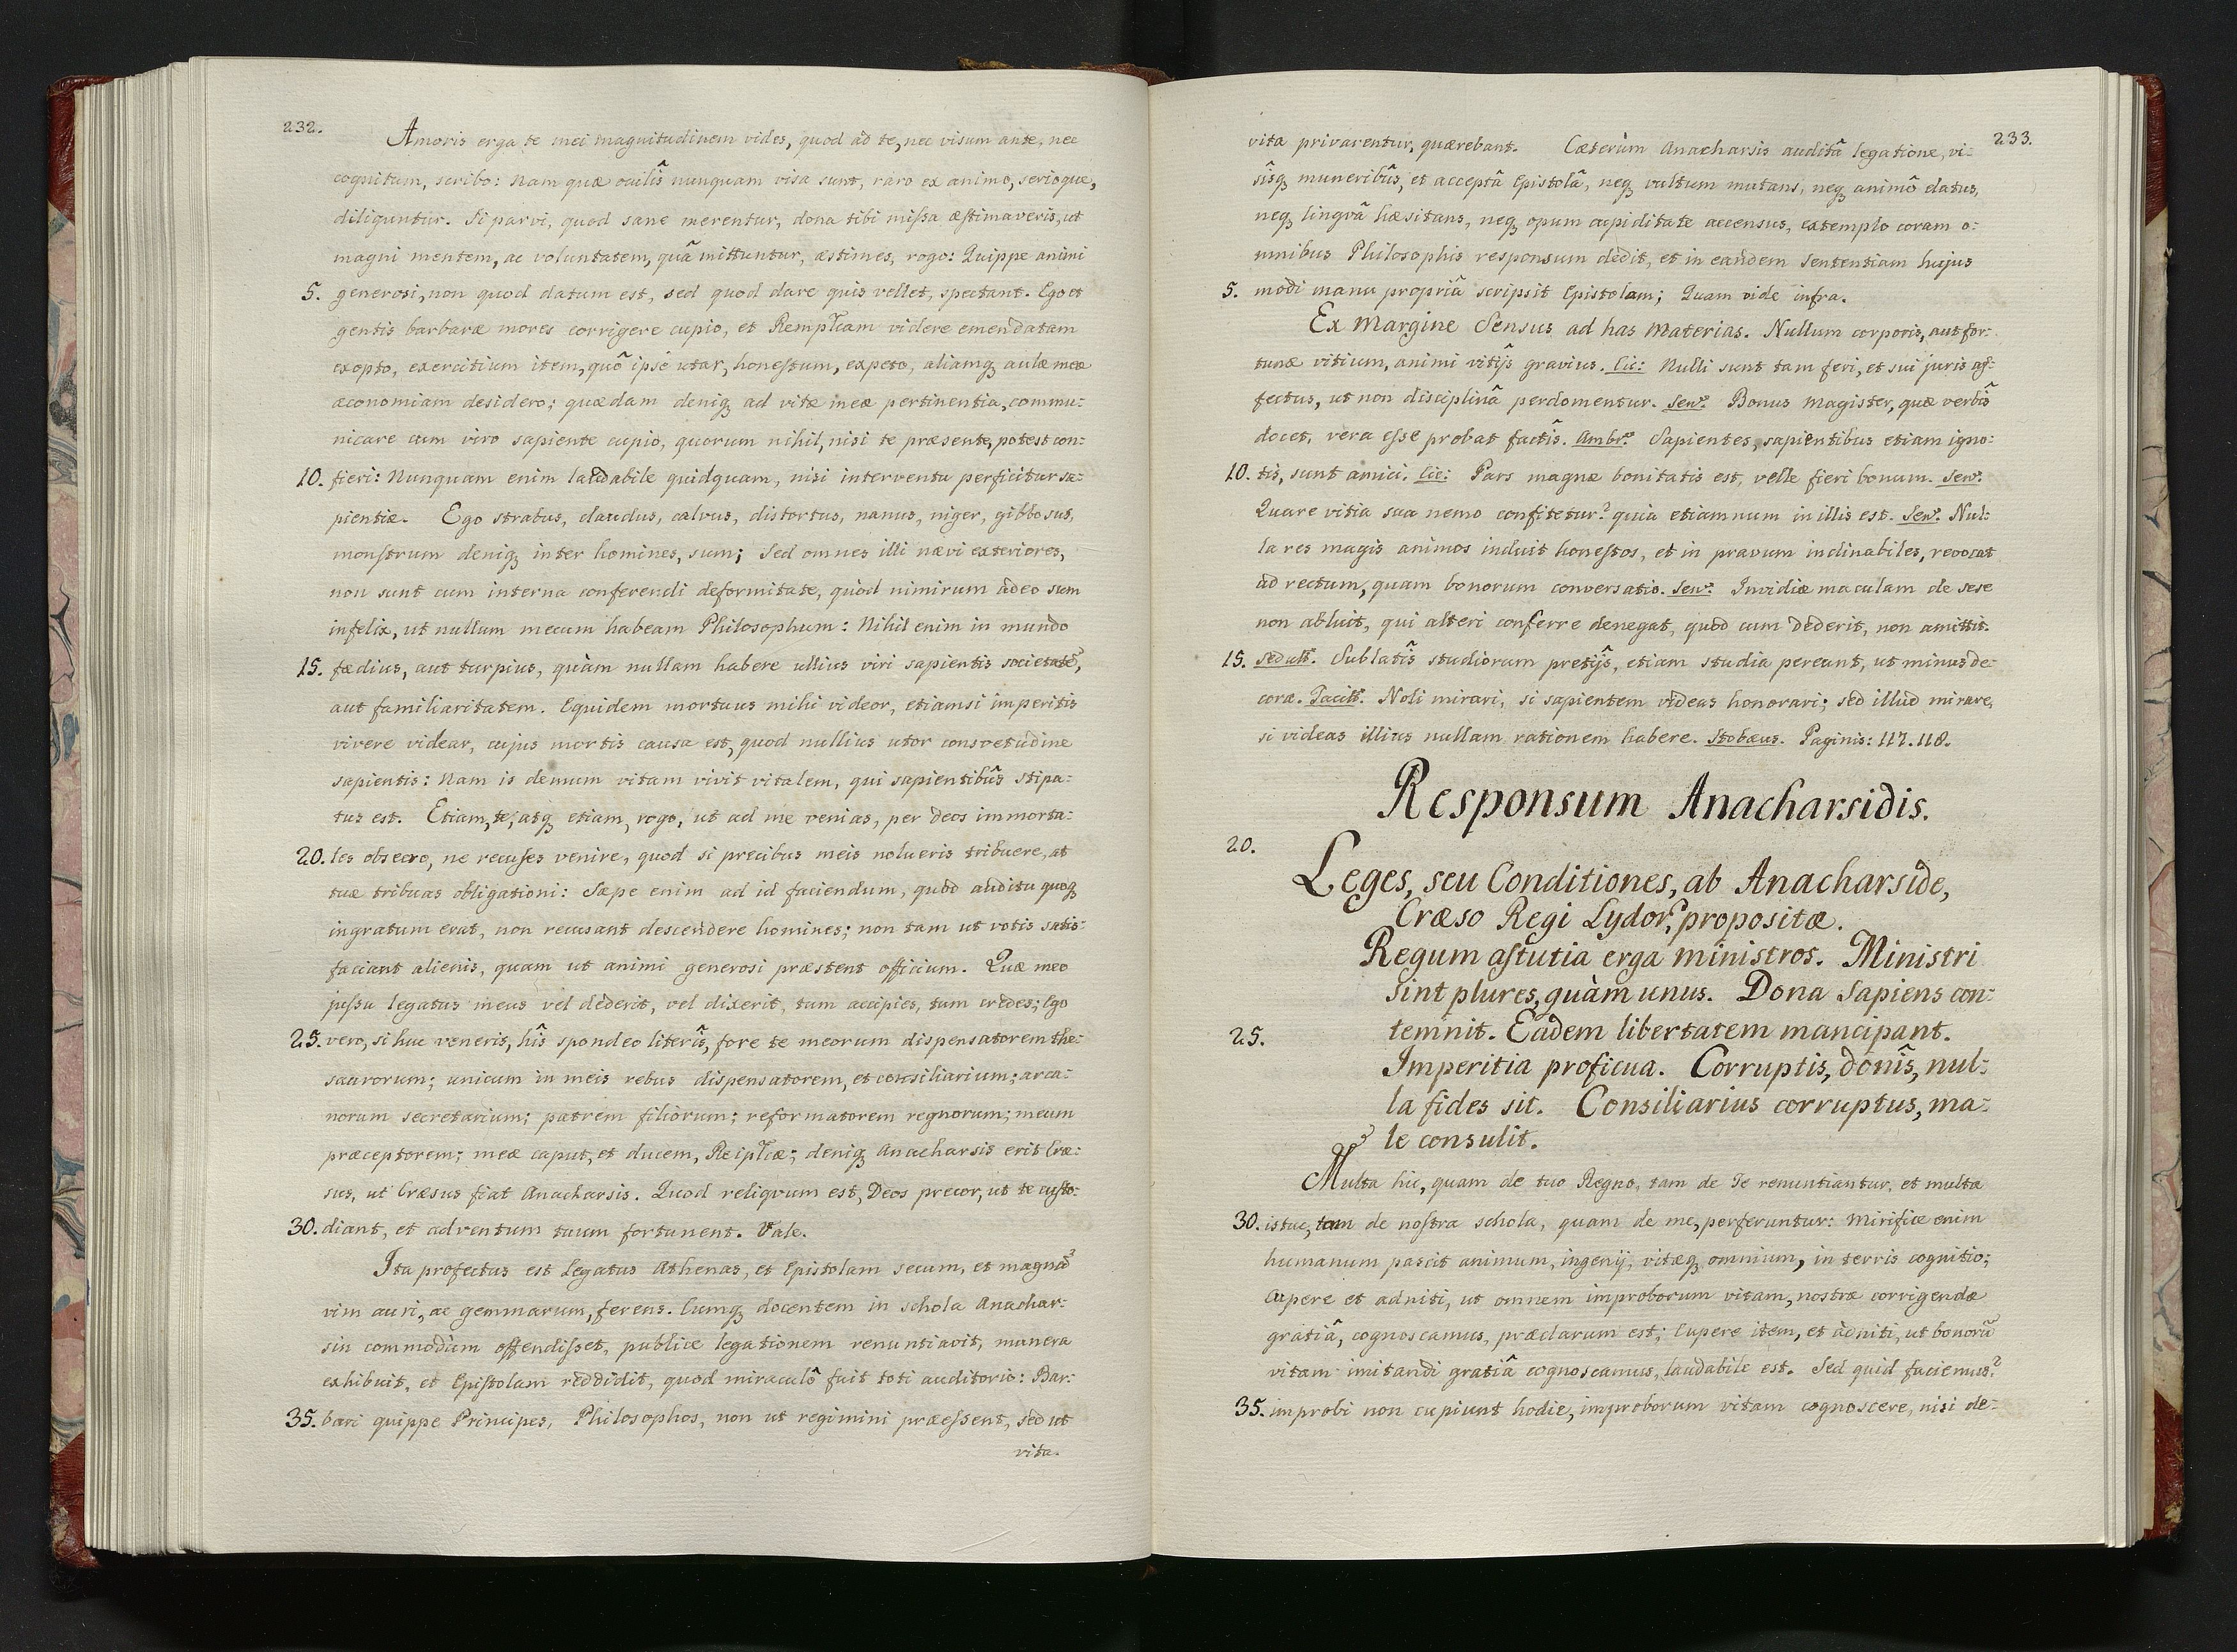 232.
Amoris erga te mei magnitudinem vides, quod ad te, nec visum ante, nec
cognitum, scribo: Nam quæ oculîs nunquam visa sunt, raro ex animo, serioque,
diliguntur. Si parvi, quod sane merentur, dona tibi mißa æstimaveris, ut
magni mentem, ac voluntatem, quâ mittuntur, æstimes, rogo: Quippe animi
5. generosi, non quod datum est, sed quod dare quis vellet, spectant. Ego et
gentis barbaræ mores corrigere cupio, et Rempl̃cam videre emendatam
exopto, exercitium item, quô ipse utar, honestum, expeto, aliamq̨ aulæ meæ
œconomiam desidero; quædam deniq̨ ad vitæ meæ pertinentia, commu:
nicare cum viro sapiente cupio, quorum nihil, nisi te præsente, potest con:
10. fieri: Nunquam enim laudabile quidquam, nisi interventu perficitur sa:
pientiæ. Ego strabus, claudus, calvus, distortus, nanus, niger, gibbosus,
monstrum deniq̨ inter homines, sum; Sed omnes illi nævi exteriores,
non sunt cum interna conferendi deformitate, quòd nimirum adeo sum
infelix, ut nullum mecum habeam Philosophum: Nihil enim in mundo
15. fœdius, aut turpius, quàm nullam habere ullius viri sapientis societatẽ,
aut familiaritatem. Equidem mortuus mihi videor, etiamsi imperitis
vivere videar, cujus mortis causa est, quod nullius utor consvetudine
sapientis: Nam is demum vitam vivit vitalem, qui sapientibûs stipa:
tus est. Etiam, te, atq̨ etiam, rogo, ut ad me venias, per Deos immorta:
20. les obsecro, ne recuses venire, quod si precibus meis nolueris tribuere, at
tuæ tribuas obligationi: Sæpe enim ad id faciendum, quod auditu quoq̨
ingratum erat, non recusant descendere homines; non tam ut votis satis:
faciant alienis, quam ut animi generosi præstent officium. Quæ meo
jußu legatus meus vel dederit, vel dixerit, tum accipies, tum credes; Ego
25. vero, si huc veneris, hîs spondeo literîs, fore te meorum dispensatorem the:
saurorum; unicum in meis rebus dispensatorem, et consiliarium; arca:
norum secretarium; patrem filiorum; reformatorem regnorum; meum
præceptorem; meæ caput, et ducem, Reipl̃cæ; deniq̨ Anacharsis erit Cræ:
sus, ut Cræsus fiat Anacharsis. Quod reliqvum est, Deos precor, ut te custo:
30. diant, et adventum tuum fortunent. Vale.
Ita profectus est Legatus Athenas, et Epistolam secum, et magnã
vim auri, ac gemmarum, ferens. Cumq̨ docentem in schola Anachar:
sin commodùm offendißet, publice legationem renuntiavit, munera
exhibuit, et Epistolam reddidit, quod miraculô fuit toti auditorio: Bar:
35. bari quippe Principes, Philosophos, non ut regimini præeßent, sed ut
vita.
233.
vita privarentur, quærebant. Cæterùm Anacharsis auditâ legatione, vi:
sîsq̨ muneribûs, et acceptâ Epistolâ, neq̨ vultum mutans, neq̨ animô elatus,
neq̨ lingvâ hæsitans, neq̨ opum cupiditate accensus, extemplo coram o:
mnibus Philosophis responsum dedit, et in eandem sententiam hujus
5. modi manu propriâ scripsit Epistolam; Quam vide infra.
Ex Margine Sensus ad has Materias. Nullum corporis, aut for:
tunæ vitium, animi vitijs gravius. Cic: Nulli sunt tam feri, et sui juris af:
fectus, ut non disciplinâ perdomentur. Senc̃. Bonus Magister, quæ verbîs
docet, vera eße probat factîs. Ambr̃. Sapientes, sapientibus etiam igno:
10. tis, sunt amici. Cic: Pars magnæ bonitatis est, velle fieri bonum. Senc̃.
Quare vitia sua nemo confitetur? quia etiamnum in illis est. Senc̃. Nul:
la res magis animos induit honestos, et in pravum inclinabiles, revocat
ad rectum, quam bonorum conversatio. Senc̃. Invidiæ maculam de sese
non abluit, qui alteri conferre denegat, quod cum dederit, non amittit.
15. Sedult̃. Sublatîs studiorum pretijs, etiam studia pereunt, ut minus de:
cora. Tacit̃. Noli mirari, si sapientem videas honorari; sed illud mirare,
si videas illius nullam rationem habere. Stobæus. Paginis: 117. 118.
Responsum Anacharsidis.
20.
Leges, seu Conditiones, ab Anacharside,
Cræso Regi Lydor̃, propositæ.
Regum astutia erga ministros. Ministri
sint plures, quàm unus. Dona Sapiens con:
25. temnit. Eadem libertatem mancipant.
Imperitia proficua. Corruptis, donîs, nul:
la fides sit. Consiliarius corruptus, ma:
le consulit.
Multa hic, quam de tuo Regno, tam de Te renuntiantur, et multa
30. istuc, tam de nostra schola, quam de me, perferuntur: Mirifice enim
humanum pascit animum, ingenij, vitæq̨ omnium, in terris cognitio;
Cupere et adniti, ut omnem improborum vitam, nostræ corrigendæ
gratiâ, cognoscamus, præclarum est; Cupere item, et adniti, ut bonorũ
vitam imitandi gratiâ cognoscamus, laudabile est. Sed quid faciemus?
35. improbi non cupiunt hodie, improborum vitam cognoscere, nisi de: